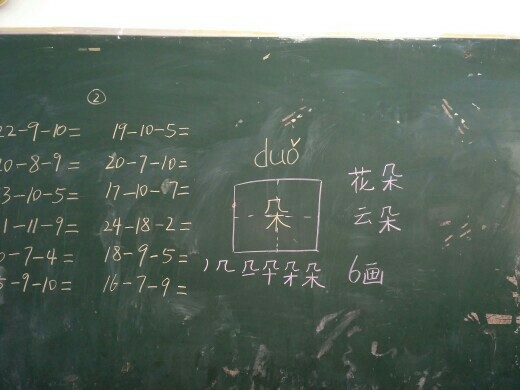 ②
22-9-10= 19-10-5=
0-8-9= 20-7-10=
3-10-5= 17-10-7=
1-11-9= 24-18-2=
-7-4= 18-9-5=
-9-10= 16-7-9=
duǒ
朵
花朵
云朵
6画